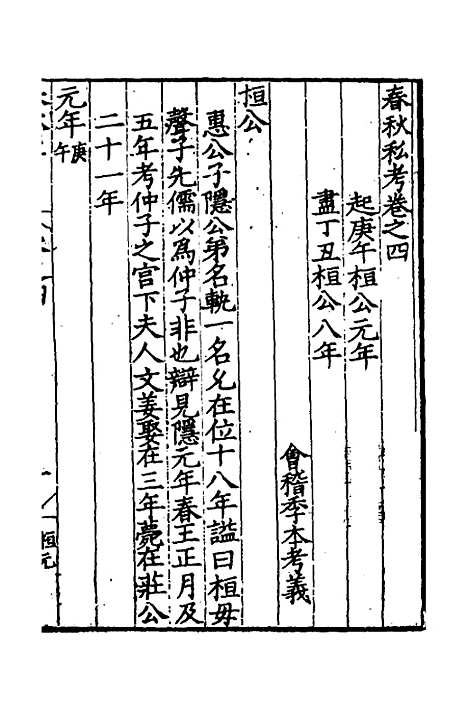 春秋私考卷之四
起庚午桓公元年
盡丁丑桓公八年
會稽季本考義
桓公
惠公子隱公弟名軌一名允在位十八年謚曰桓毋
聲子先儒以爲仲子非也辯見隱元年春王正月及
五年考仲子之宫下夫人文姜娶在三年薨在莊公
二十一年
元年庚午
桓元